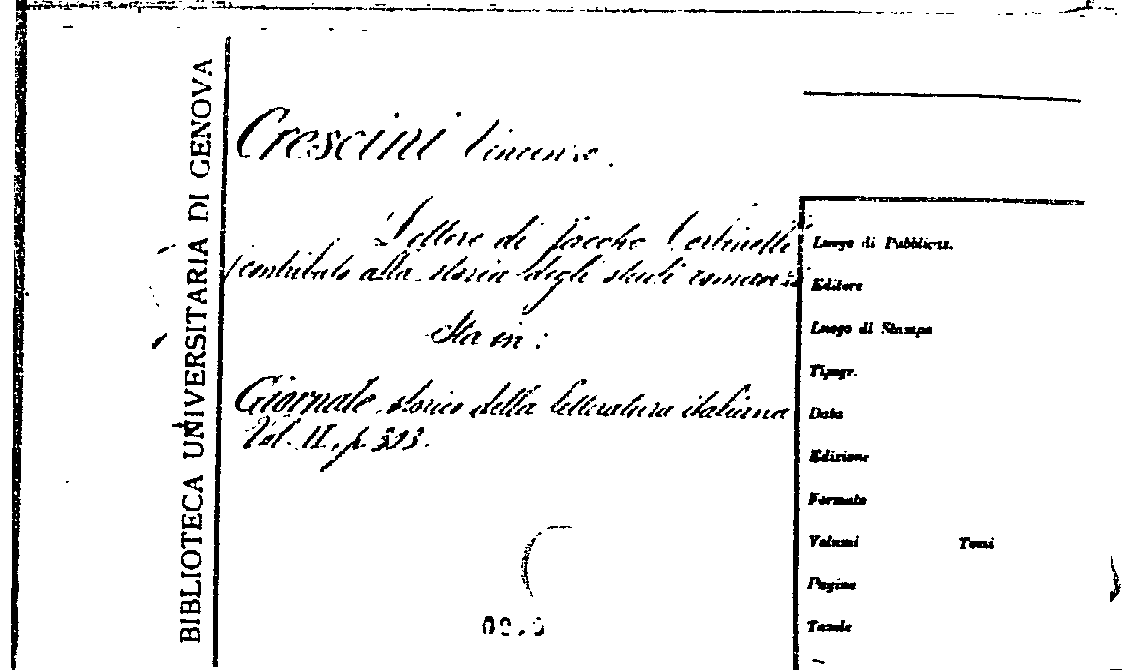 BIBLIOTECA UNIVERSITARIA DI GENOVA
Crescini Vincenzo.
Lettere di Jacopo Corbinelli
(contributo alla storia degli studi romanzi
Sta in:
Giornale storico della letteratura italiana
Vol. II, p. 333.
Luogo di Pubblicaz.
Editore
Luogo di Stampa
Tipogr.
Data
Edizione
Formato
Volumi Tomi
Pagine
Tavole